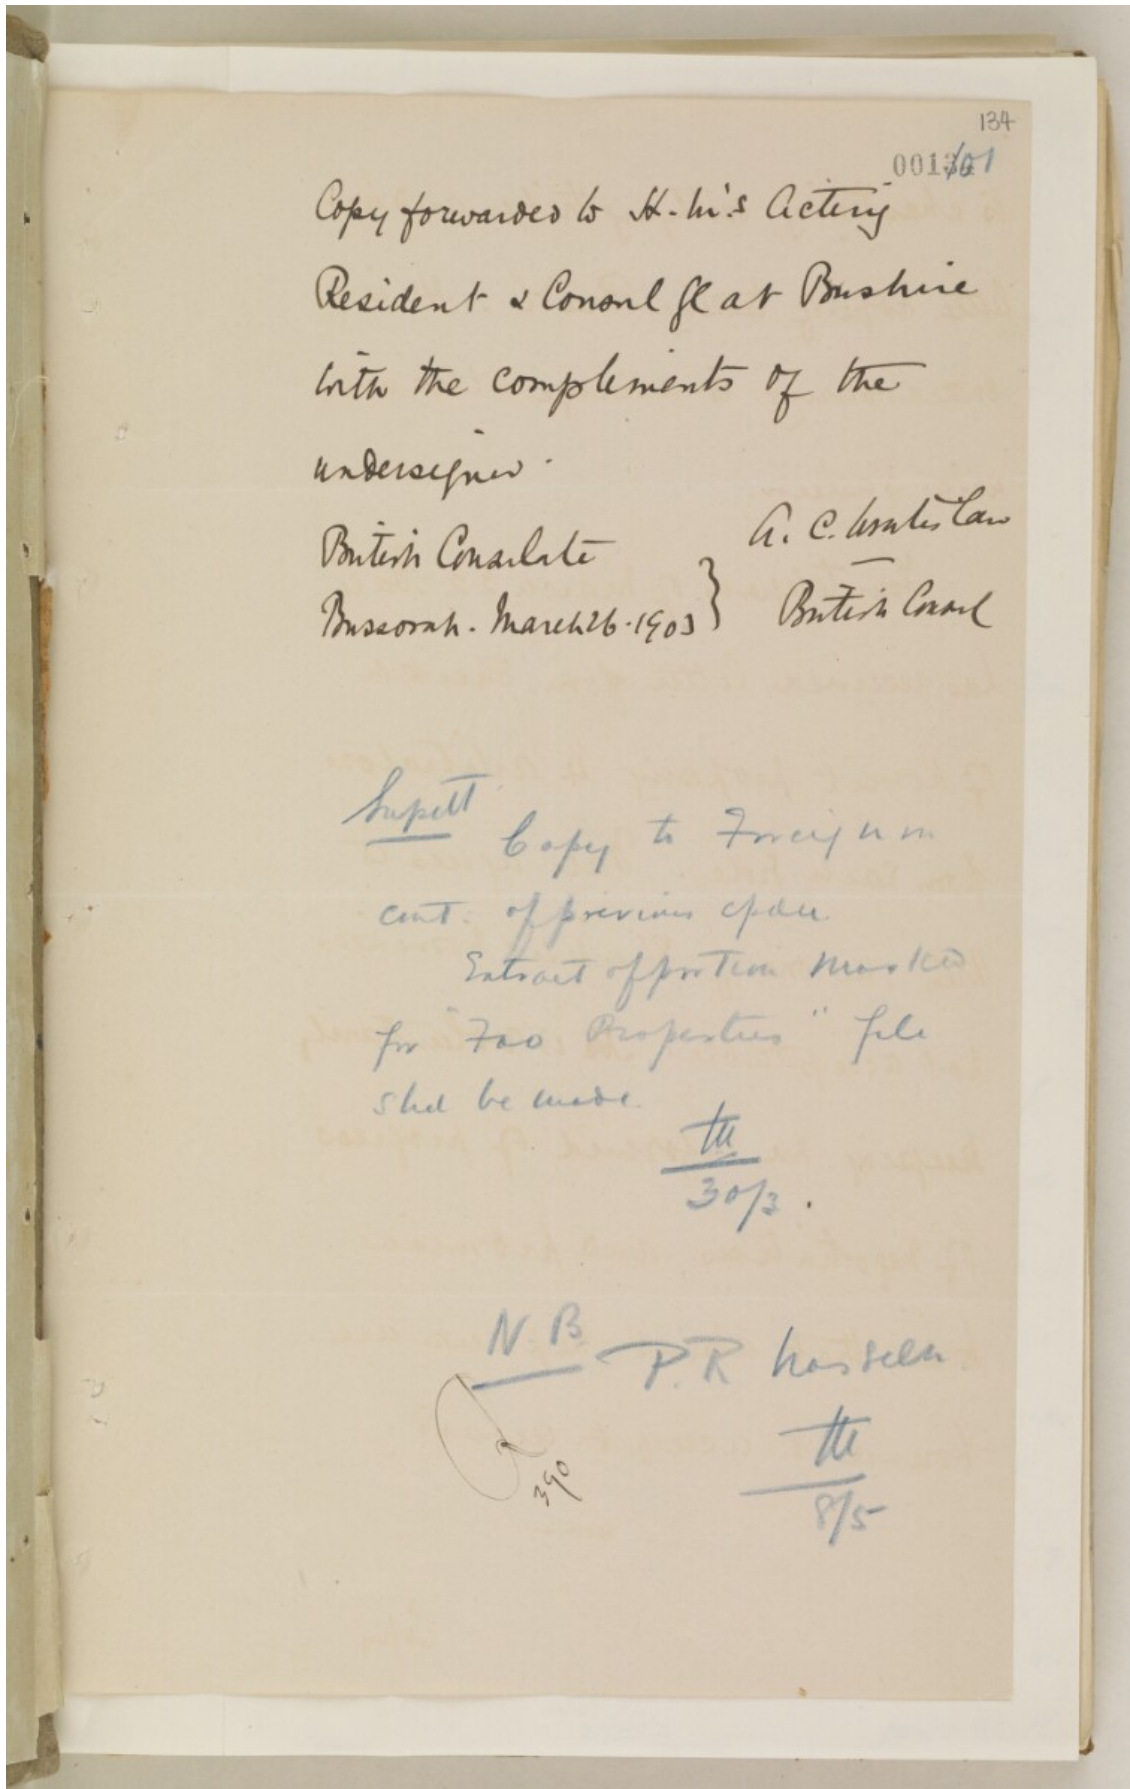 134
001
101
Copy forwarded to H.M's Acting
Resident & Consul Gl at Bushire
with the complements of the
undersigned.
British Consulate
Bussorah. March 26. 1903 }
A. C. Wratislaw
British Consul
Supdt
Copy to Foreign in
cont. of previous
Extract of portion marked
for "Fao Properties" file
shd be made.
30/3.
N B
P.R
8/5
390